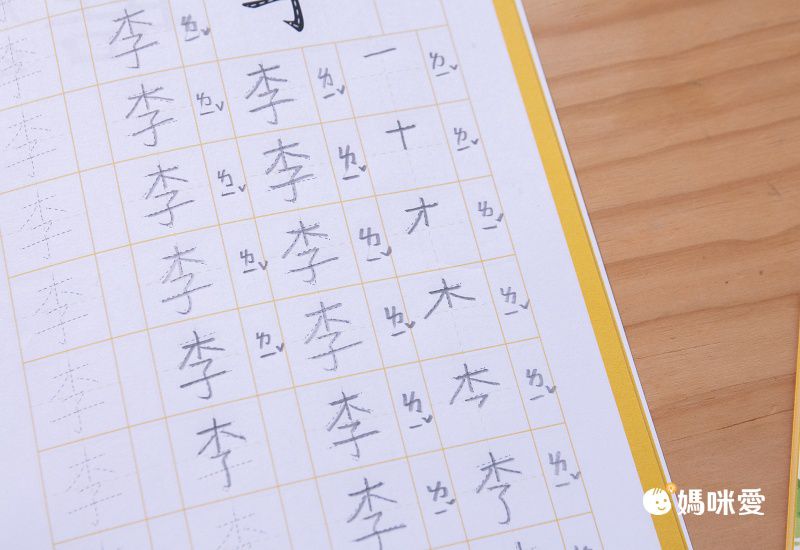 一ㄌㄧˇ十ㄌㄧˇ才ㄌㄧˇ木ㄌㄧˇㄌㄧˇㄌㄧˇ
李ㄌㄧˇ李ㄌㄧˇ李ㄌㄧˇ李ㄌㄧˇ李ㄌㄧˇ李ㄌㄧˇ
李ㄌㄧˇ李ㄌㄧˇ李ㄌㄧˇ李ㄌㄧˇ李ㄌㄧˇ李李
李李李李李李
媽咪愛